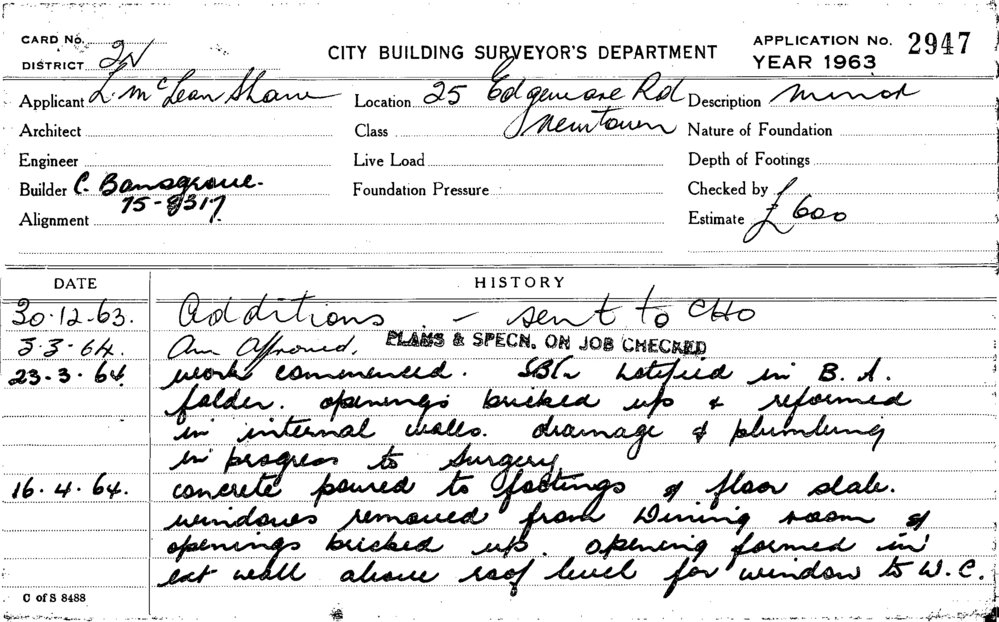 CARD No.
DISTRICT 2N
CITY BUILDING SURVEYOR'S DEPARTMENT
APPLICATION No. 2947
YEAR 1963
Applicant L. McLean Shaw
Location 25 Edgeware Rd
Newtown
Description Minor
Architect
Class
Nature of Foundation
Engineer
Live Load
Depth of Footings
Builder C. Bonsgrove.
75-8317
Foundation Pressure
Checked by
Alignment
Estimate £600
DATE
HISTORY
30.12.63. Additions - sent to CHO
3.3.64. Approved. PLANS & SPECN. ON JOB CHECKED
23.3.64 work commenced. Notified in B. A.
folder. openings bricked up & reformed
in internal walls. drainage & plumbing
in progress to Surgery
16.4.64. concrete poured to footings & floor slab.
windows removed from Dining room &
openings bricked up. opening formed in
ext wall above roof level for window to W.C.
C of S 8488